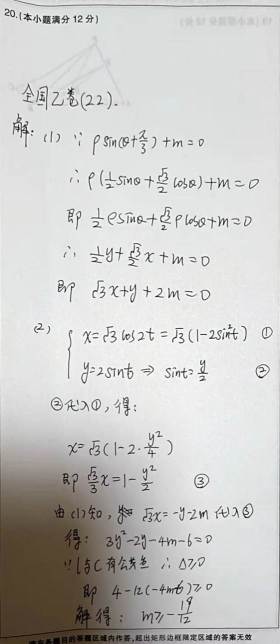 20.(本小题满分12分)
全国乙卷(22).
解:(1) ∵ ρsin(θ+π/3)+m=0
∴ ρ(1/2 sinθ+√3/2 cosθ)+m=0
即 1/2 ρsinθ+√3/2 ρcosθ+m=0
∴ 1/2 y+√3/2 x+m=0
即 √3x+y+2m=0
(2) { x=√3cos2t=√3(1-2sin²t) ①
y=2sint ⇒ sint=y/2 ②
②代入①,得:
x=√3(1-2·y²/4)
即 √3/3 x=1-y²/2 ③
由(1)知, √3x=-y-2m 代入③
得: 3y²-2y-4m-6=0
∵l与C有公共点 ∴Δ≥0
即 4-12(-4m-6)≥0
解得: m≥-19/12
请在各题目的答题区域内作答,超出矩形边框限定区域的答案无效